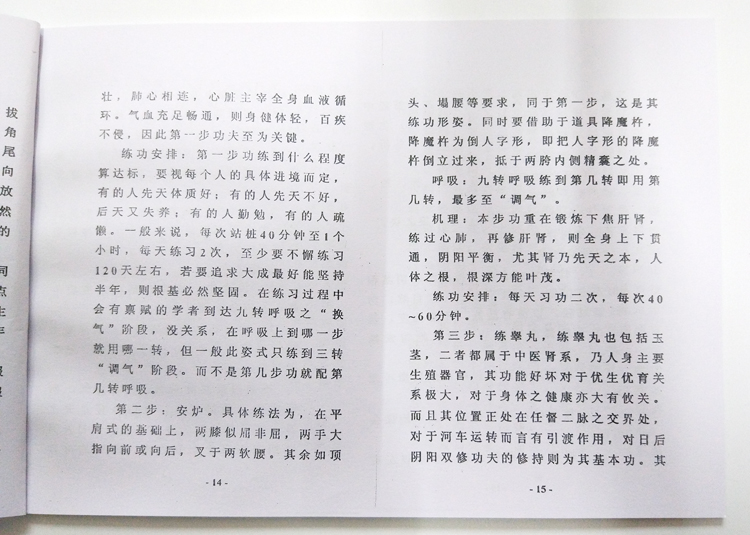 拔
角
尾
向
放
然
的
同
点
年
壮，肺心相连，心脏主宰全身血液循
环。气血充足畅通，则身健体轻，百疾
不侵，因此第一步功夫至为关键。
练功安排：第一步功练到什么程度
算达标，要视每个人的具体进境而定，
有的人先天体质好；有的人先天不好，
后天又失养；有的人勤勉，有的人疏
懒。一般来说，每次站桩40分钟至1个
小时，每天练习2次，至少要不懈练习
120天左右，若要追求大成最好能坚持
半年，则根基必然坚固。在练习过程中
会有禀赋的学者到达九转呼吸之“换
气”阶段，没关系，在呼吸上到哪一步
就用哪一转，但一般此姿式只练到三转
“调气”阶段。而不是第几步功就配第
几转呼吸。
第二步：安炉。具体练法为，在平
肩式的基础上，两膝似屈非屈，两手大
指向前或向后，叉于两软腰。其余如顶
- 14 -
头、塌腰等要求，同于第一步，这是其
练功形姿。同时要借助于道具降魔杵，
降魔杵为倒人字形，即把人字形的降魔
杵倒立过来，抵于两胯内侧精囊之处。
呼吸：九转呼吸练到第几转即用第
几转，最多至“调气”。
机理：本步功重在锻炼下焦肝肾，
练过心肺，再修肝肾，则全身上下贯
通，阴阳平衡，尤其肾乃先天之本，人
体之根，根深方能叶茂。
练功安排：每天习功二次，每次40
~60分钟。
第三步：练睾丸，练睾丸也包括玉
茎，二者都属于中医肾系，乃人身主要
生殖器官，其功能好坏对于优生优育关
系极大，对于身体之健康亦大有攸关。
而且其位置正处在任督二脉之交界处，
对于河车运转而言有引渡作用，对日后
阴阳双修功夫的修持则为其基本功。其
- 15 -